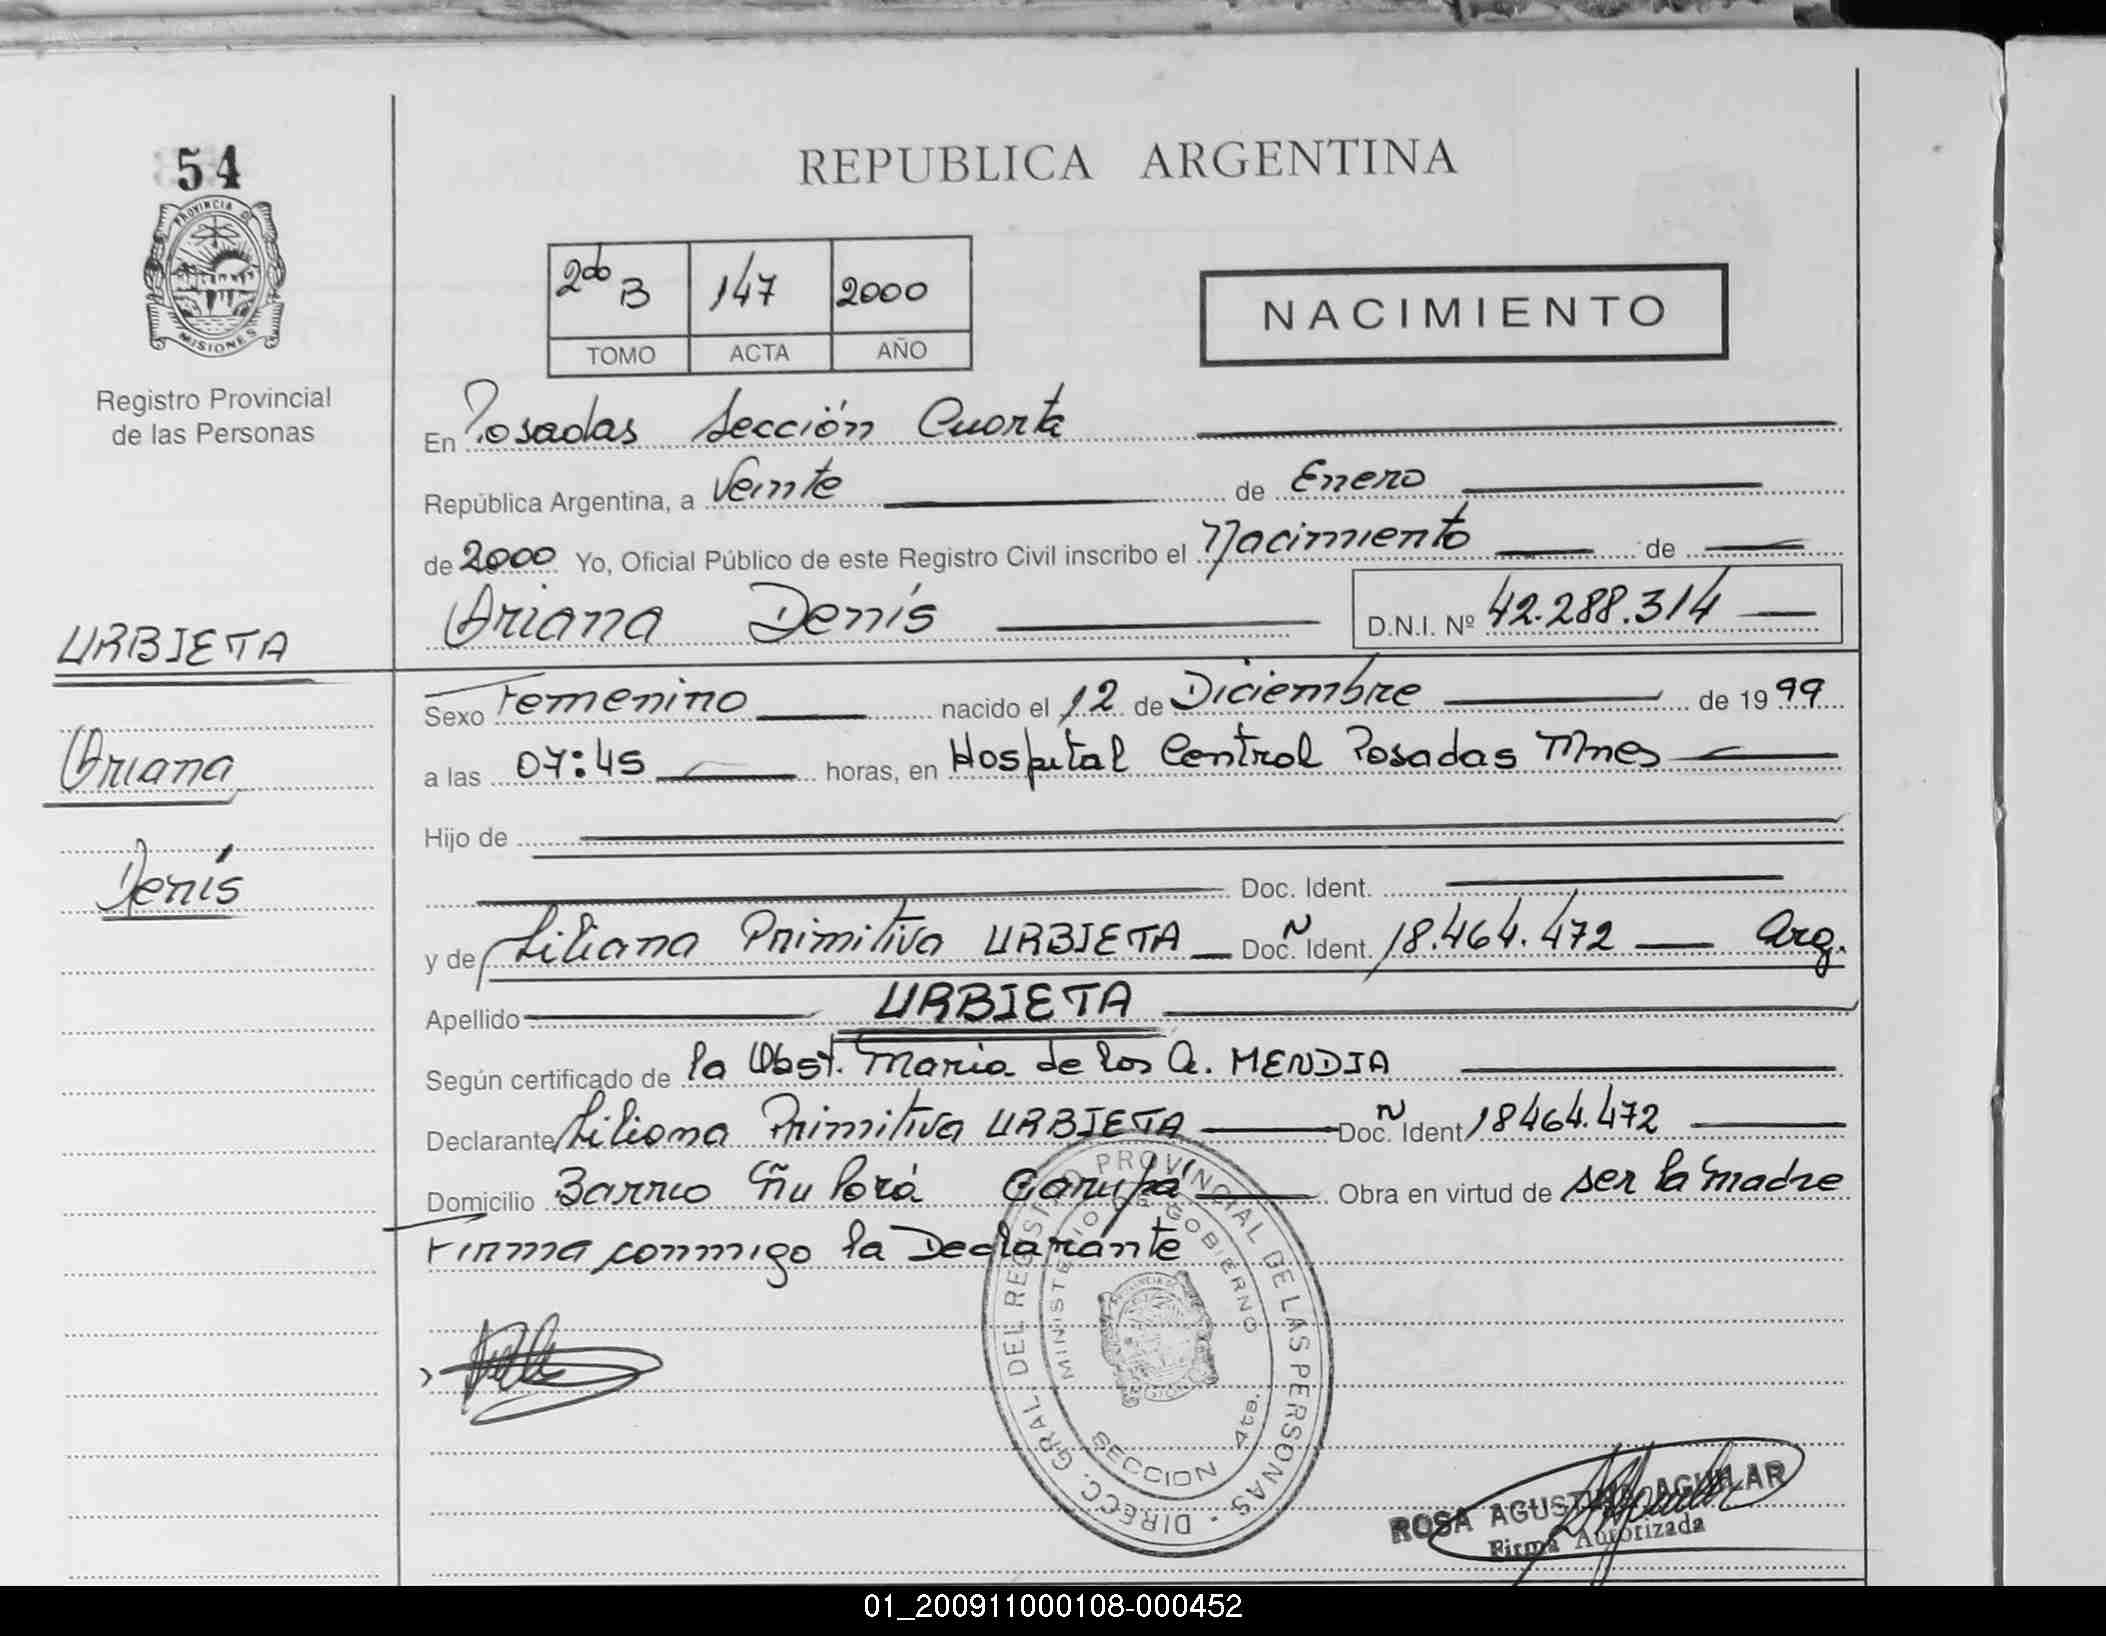 54
PROVINCIA DE
MISIONES
Registro Provincial
de las Personas
URBIETA
Ariana
Denís
REPUBLICA ARGENTINA
2do B 147 2000
TOMO ACTA AÑO
NACIMIENTO
En Posadas Sección Cuarta
República Argentina, a Veinte de Enero
de 2000 Yo, Oficial Público de este Registro Civil inscribo el Nacimiento de
Ariana Denís D.N.I. Nº 42.288.314
Sexo Femenino nacido el 12 de Diciembre de 1999
a las 07:45 horas, en Hospital Central Posadas Mnes
Hijo de
Doc. Ident.
y de Liliana Primitiva URBIETA Doc. Ident. 18.464.472 Arg.
Apellido URBIETA
Según certificado de la Obst. Maria de los A. MENDIA
Declarante Liliana Primitiva URBIETA Doc. Ident 18464.472
Domicilio Barrio Ñu Porá Garupá Obra en virtud de ser la madre
Firma conmigo la Declarante
DIRECC. GRAL. DEL REGISTRO PROVINCIAL DE LAS PERSONAS
MINISTERIO DE GOBIERNO
SECCION 4ta.
ROSA AGUSTINA AGUILAR
Firma Autorizada
01_200911000108-000452